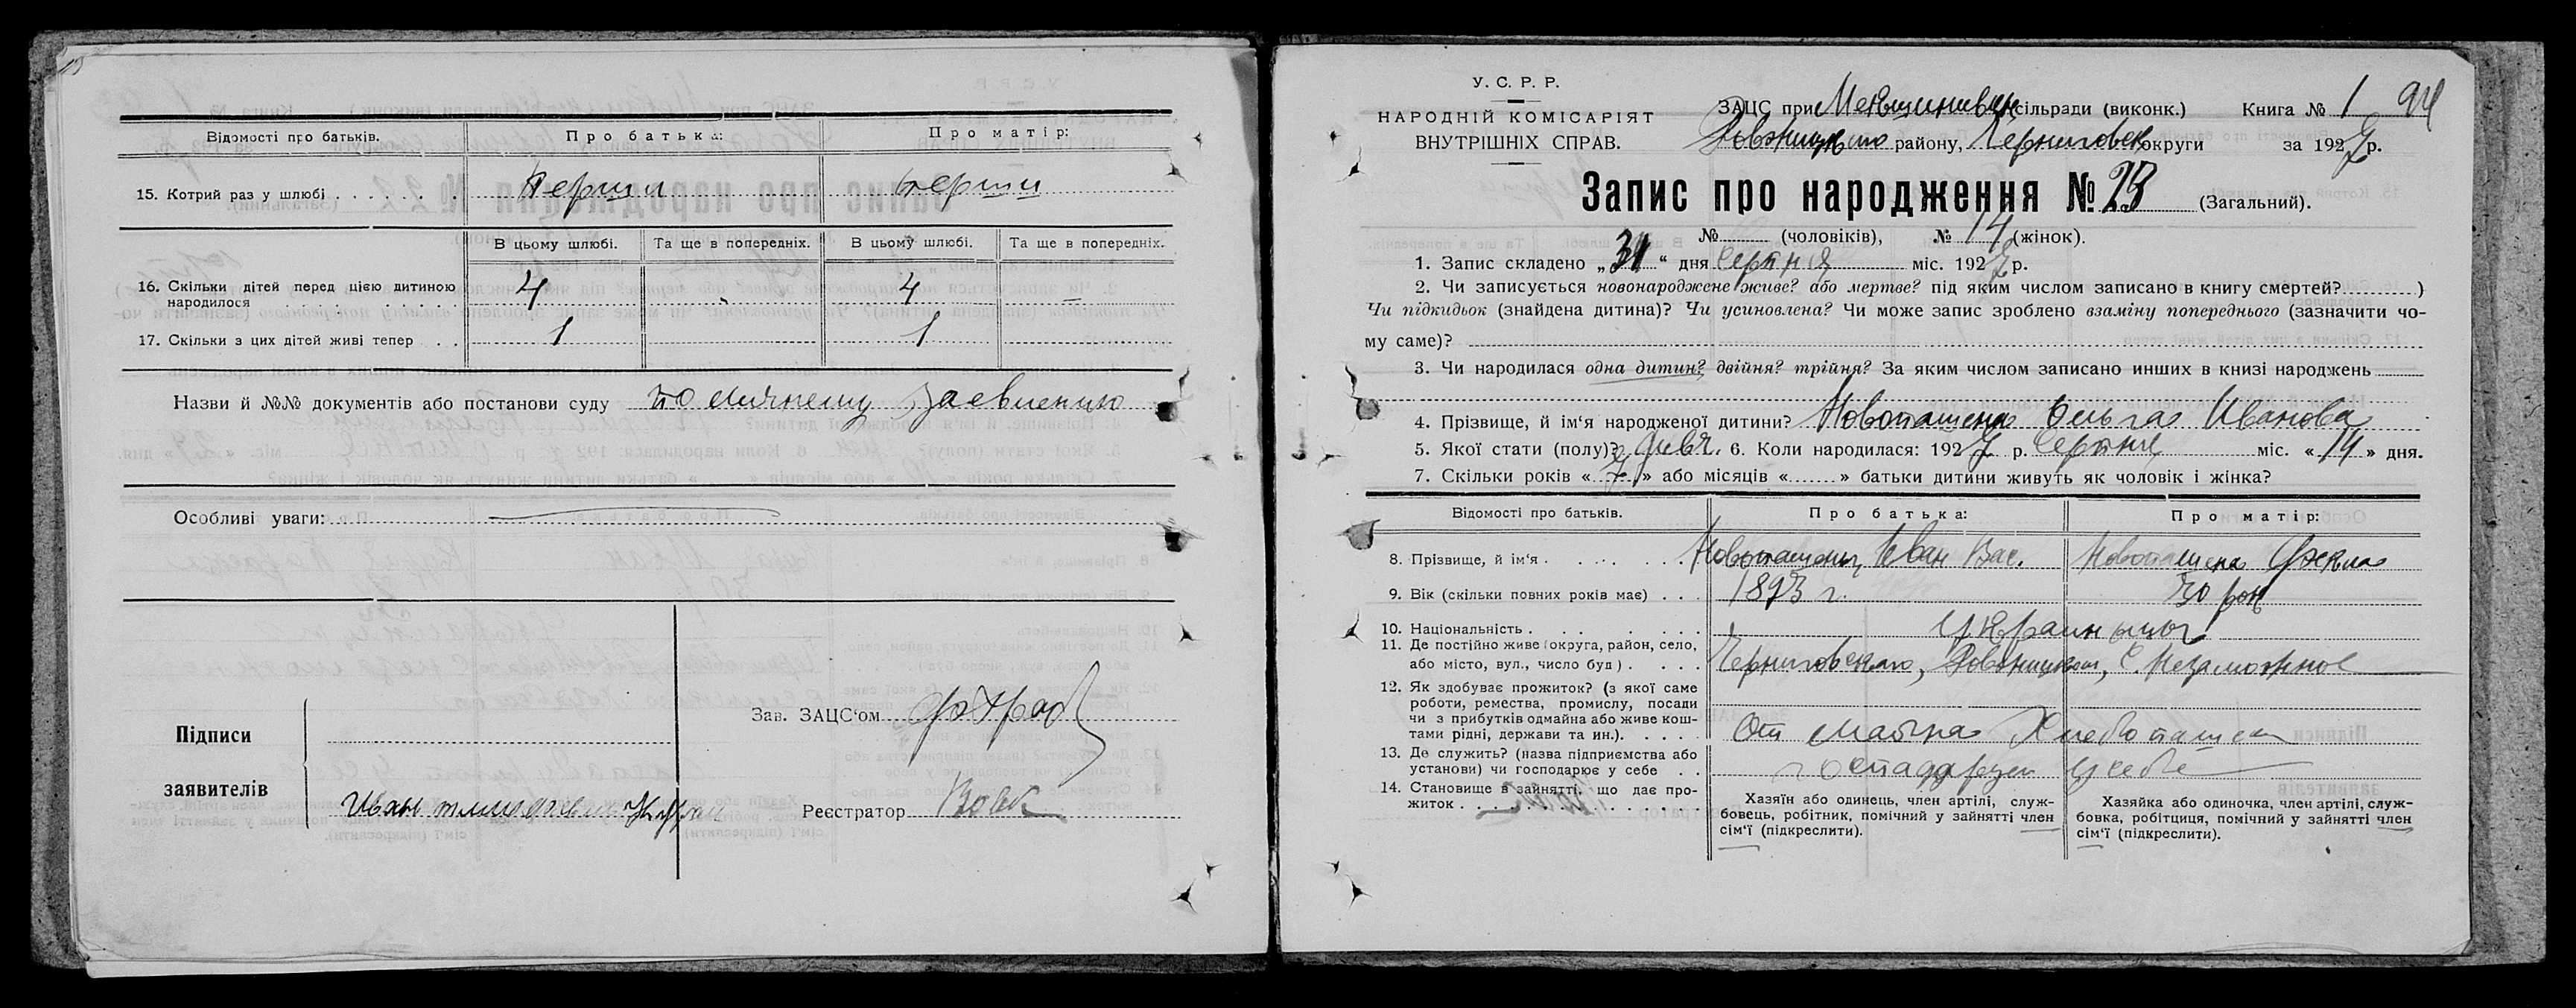 Відомості про батьків. Про батька: Про матір:
15. Котрий раз у шлюбі . . . . . . . . Першил перши
В цьому шлюбі. Та ще в попередніх. В цьому шлюбі. Та ще в попередніх.
16. Скільки дітей перед цією дитиною
народилося . . . . . . . . . 4 " 4 –
17. Скільки з цих дітей живі тепер . . 1 1
Назви й №№ документів або постанови суду по личному заевлению
Особливі уваги:
Підписи
заявителів
Зав. ЗАЦС‘ом
Иван
Реєстратор Вовк
У. С. Р. Р.
НАРОДНІЙ КОМІСАРІЯТ
ВНУТРІШНІХ СПРАВ.
ЗАЦС при сільради (виконк.) Книга № 1 94
району, Черниговск округи за 1927 р.
Запис про народження № 23 (Загальний).
№ (чоловіків), № 14 (жінок).
1. Запис складено „31“ дня Серпня міс. 1927 р.
2. Чи записується новонароджене живе? або мертве? під яким числом записано в книгу смертей? )
Чи підкидьок (знайдена дитина)? Чи усиновлена? Чи може запис зроблено взаміну попереднього (зазначити чо-
му саме)?
3. Чи народилася одна дитин? двійня? трійня? За яким числом записано инших в книзі народжень
4. Прізвище, й ім‘я народженої дитини? Новопашена Ольга Иванова
5. Якої стати (полу)? дівч. 6. Коли народилася: 1927 р. Серпня міс. « 14 » дня.
7. Скільки років « 7 » або місяців « » батьки дитини живуть як чоловік і жінка?
Відомості про батьків. Про батька: Про матір:
8. Прізвище, й ім‘я . . . . . Новопашены Иван Вас. Новопашена Фекла
9. Вік (скільки повних років має) . . . 1893 г. 30 рок
10. Національність . . . . . . . Украинцы
11. Де постійно живе (округа, район, село,
або місто, вул., число буд) . . . . Черниговского, с. Незаможное
12. Як здобуває прожиток? (з якої саме
роботи, ремества, промислу, посади
чи з прибутків одмайна або живе кош-
тами рідні, держави та ин.). . . . . От майна Хлебопашен
13. Де служить? (назва підприємства або
установи) чи господарює у себе . . господаруеи у себе
14. Становище в зайнятті. що дає про-
житок . . . . . . . . . . . .
Хазяїн або одинець, член артілі, служ-
бовець, робітник, помічний у зайнятті член
сім‘ї (підкреслити).
Хазяйка або одиночка, член артілі, служ-
бовка, робітциця, помічний у зайнятті член
сім‘ї (підкреслити).